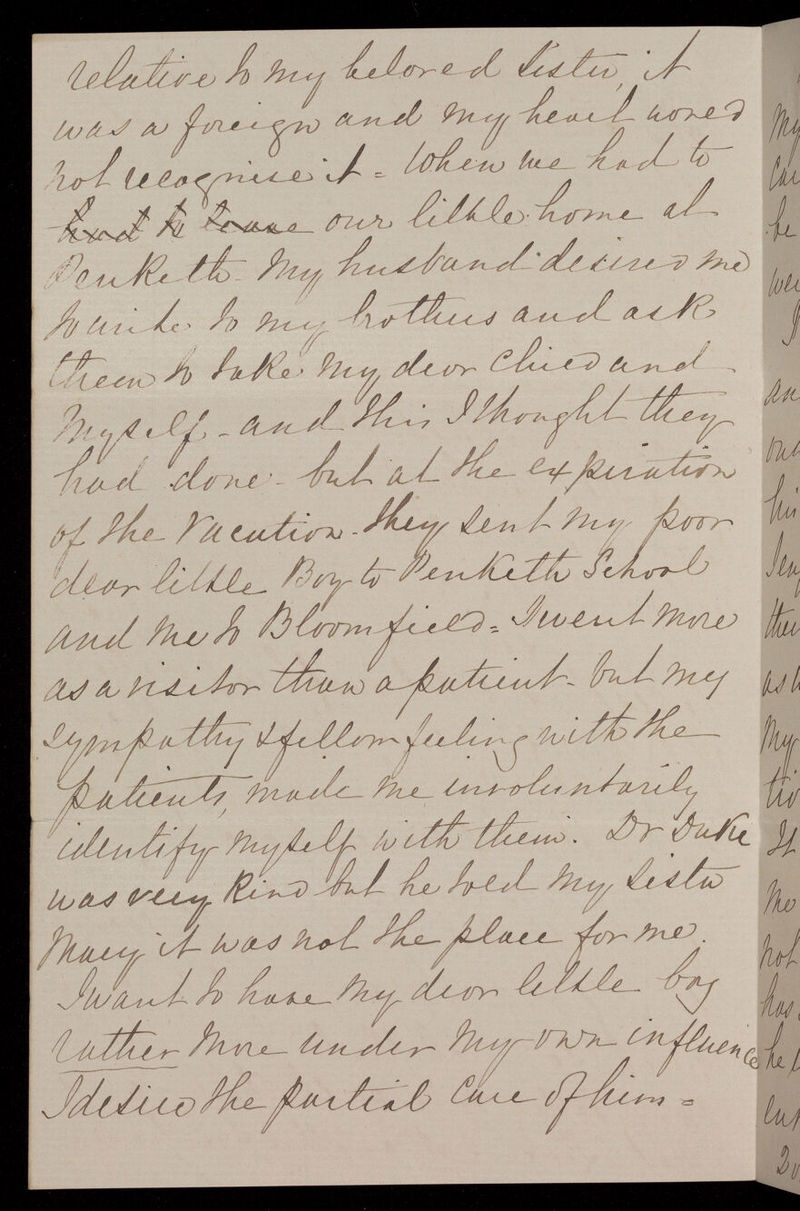 relative to my beloved Sister, it
was a foreign and my heart wored
not recognise it = When we had to
had to leave our little home at
Penketh - My husband desired me
to write to my brothers and ask
them to take my dear Chied and
Myself - and this I thought they
had done - but at the expiration
of the Vacation - they sent my poor
dear little Boy to Penketh School
and me to Bloomfield = I went more
as a visitor than a patient - but my
sympathy & fellow feeling with the
patients, made me involuntarily
identify myself with them. Dr Duke
was very kind but he toed my Sister
Mary it was not the place for me.
I want to have my dear little boy
rather more under my own influence
I desire the partial care of him =
My
be
an
out
his
as
My
It
Me
not
has
he